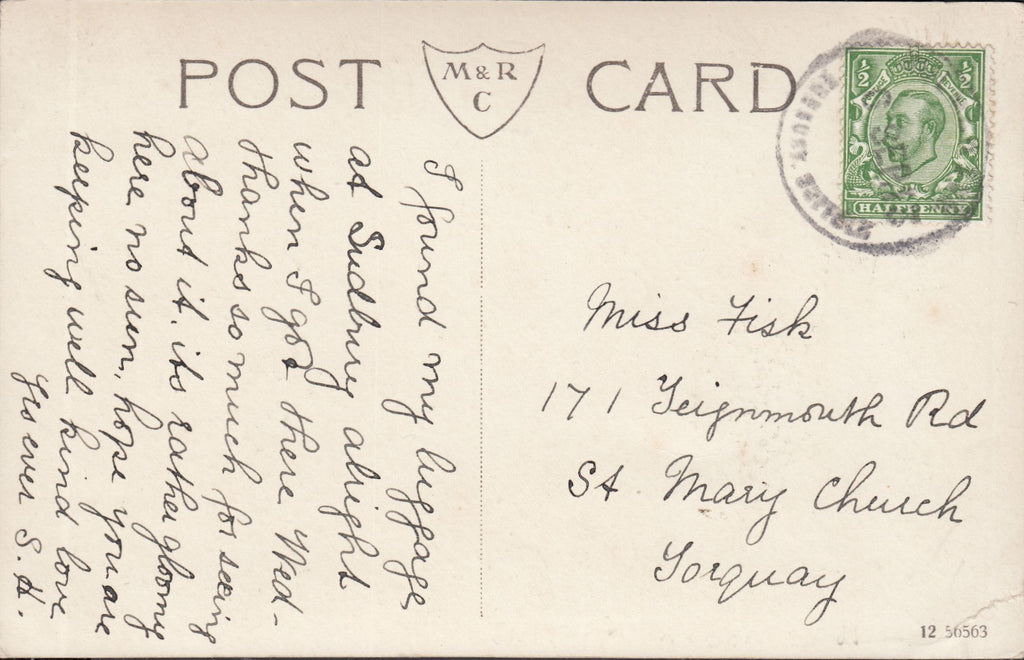 POST CARD
M & R
C
I found my luggage
at Sudbury alright
when I got there Wed-
thanks so much for seeing
about it. its rather gloomy
here no sun, hope you are
keeping well kind love
Yrs ever S. H.
½ ½
POSTAGE REVENUE
HALFPENNY
Miss Fisk
171 Teignmouth Rd
St Mary Church
Torquay
12 56563